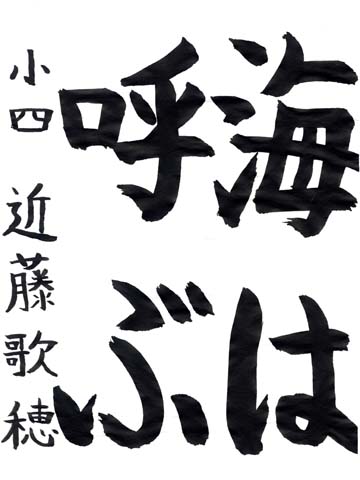 海は
呼ぶ
小四 近藤歌穂